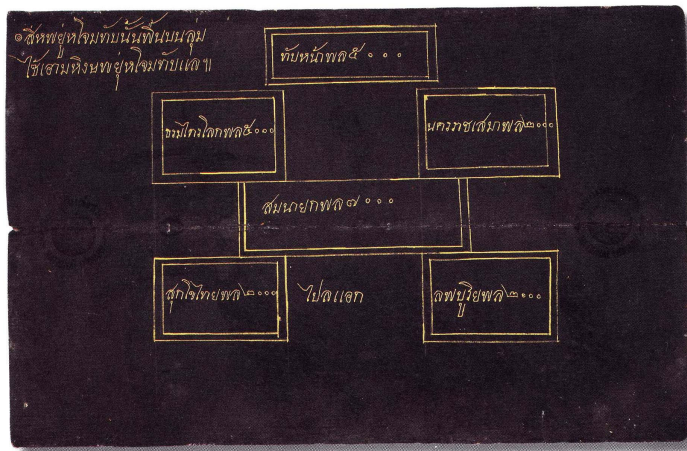 ๏ สีหพยู่หโจมทับนั้นพื้นบนลุม
ใช้เอามหิงษพยุ่หโจมทับแล ๚
ทับหน้าพล ๕๐๐๐
ธรมไตรโลกพล ๕๐๐๐
นครราชเสมาพล ๒๐๐๐
สมนายกพล ๗๐๐๐
สุกโขไทยพล ๒๐๐๐
ไปลแอก
ลพบูริยพล ๒๐๐๐